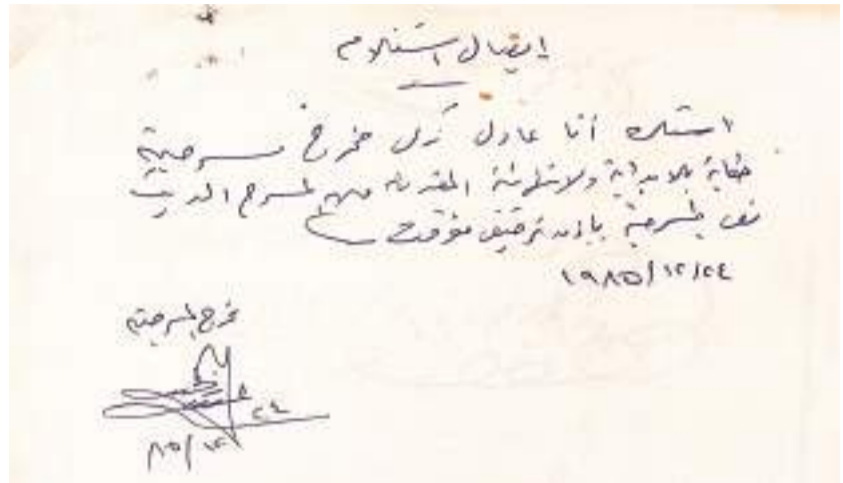 إيصال استلام
استلمت أنا عادل زكى مخرج مسرحية
حكاية بلا بداية ولا نهاية المقدمة من المسرح الحديث
نص المسرحية بإذن ترخيص مؤقت
١٩٨٥/١٢/٢٤
مخرج المسرحية
٢٤
٨٥/١٢